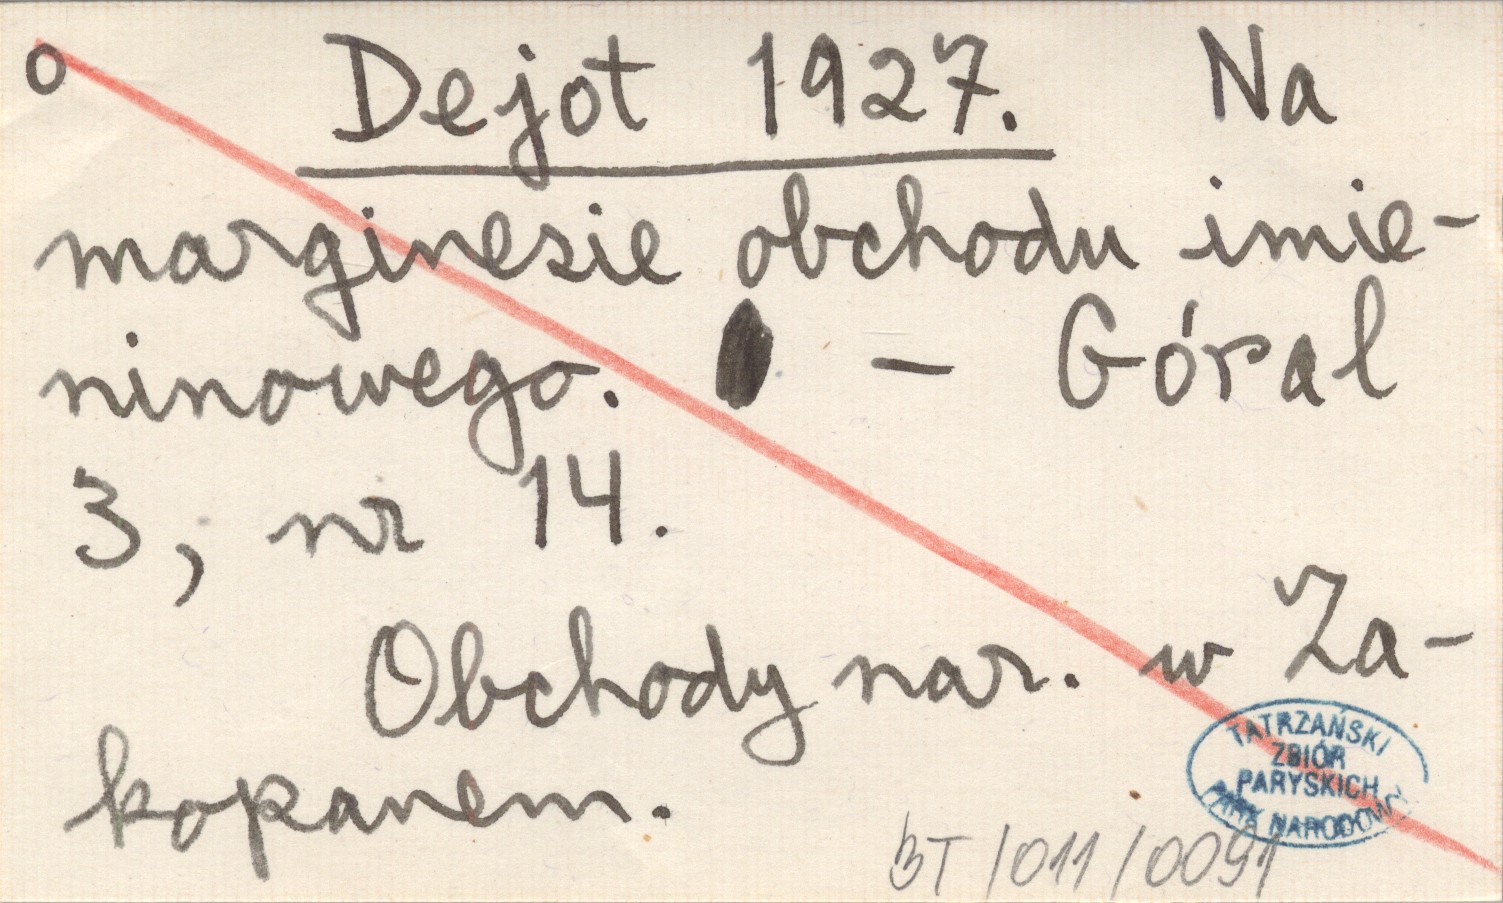 o Dejot 1927. Na
marginesie obchodu imie-
ninowego. - Góral
3, nr 14.
Obchody nar. w Za-
kopanem.
TATRZAŃSKI
ZBIÓR
PARYSKICH
PARK NARODOWY
BT/011/0091